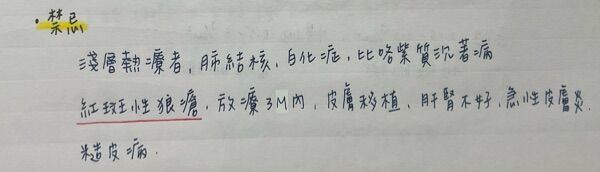 • 禁忌
淺層熱療者, 肺結核, 白化症, 比咯紫質沉著病
紅斑性狼瘡, 放療3M內, 皮膚移植, 肝腎不好, 急性皮膚炎.
糙皮病.